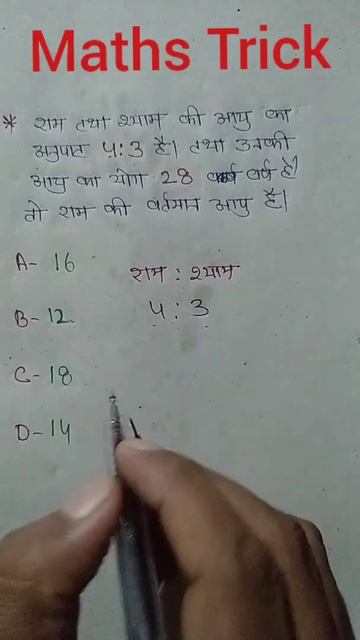 Maths Trick
* राम तथा श्याम की आयु का
अनुपात 4:3 है। तथा उनकी
आयु का योग 28 वर्ष है।
तो राम की वर्तमान आयु है।
A- 16
राम : श्याम
4 : 3
B- 12
C- 18
D- 14